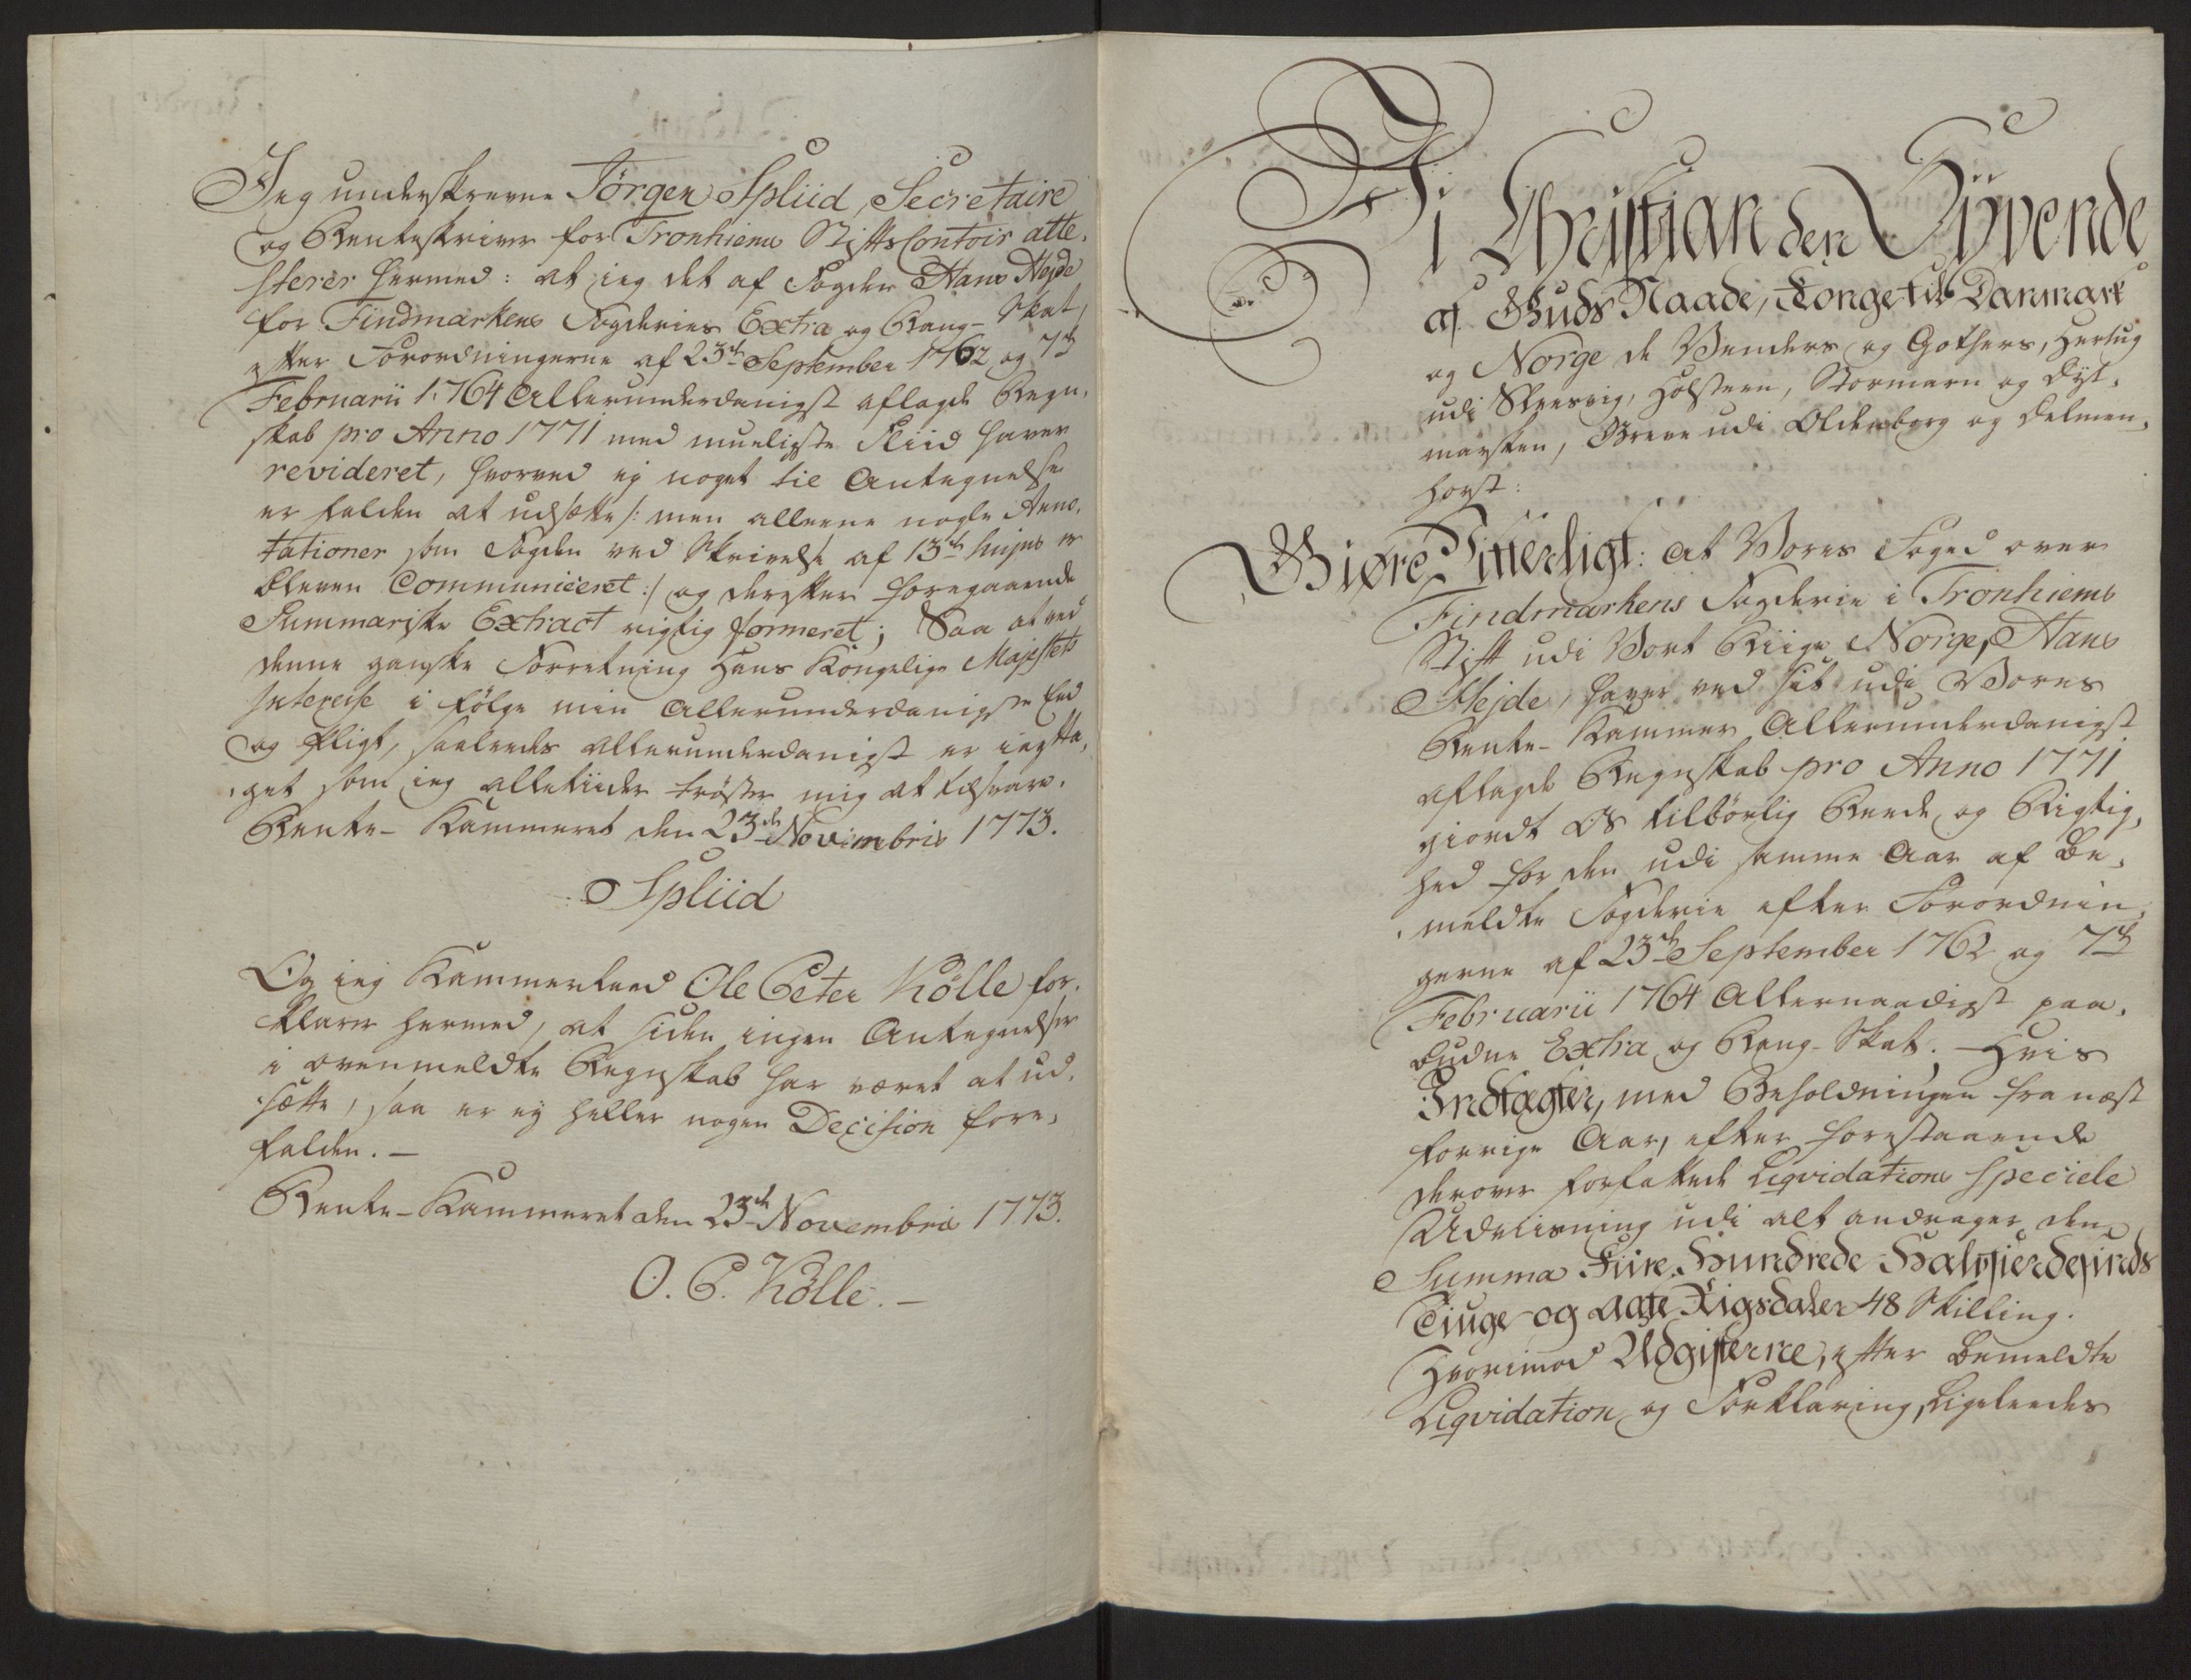 Jeg underskrevne Jörgen Spliid, Secretaire
og Renteskriver for Tronhiems Stifts Contoir atte,
sterer hermed: at jeg det af Fogden Hans Hejde
for Findmarkens Fogderies Extra og Rang-Skat,
efter Forordningerne af 23de September 1762 og 7de
Februarii 1764 Allerunderdanigst aflagde Regn,
skab pro Anno 1771 med mueligste Fliid haver
revideret, hvorved ej noget til Antegnelse
er falden at udsætte /: men alleene nogle Anno,
tationer som Fogden ved Skrivelse af 13de hujus er
bleven Communiceret :/ og derefter foregaaende
Summariske Extract rigtig formeret; Saa at ved
denne ganske Forretning Hans Kongelige Majestets
Interesse i fölge min Allerunderdanigste Eed
og Pligt, saaleedes allerunderdanigst er iagtta,
get som jeg alletiider tröster mig at tilsvare.
Rente-Kammeret den 23de Novembris 1773.
Spliid
Og jeg Kammerraad Ole Peter Kölle for,
klarer hermed, at siden ingen Antegnelser
i ovenmeldte Regnskab har været at ud,
sætte, saa er ej heller nogen Decision fore,
falden. —
Rente-Kammeret den 23de Novembris 1773.
O. P. Kölle. —
Vi Christian den Syvende
af Guds Naade, Konge til Danmark
og Norge de Venders og Gothers, Hertug
udi Slesvig, Holsteen, Stormarn og Dyt,
marsken, Greve udi Oldenborg og Delmen,
horst:
Giøre Vitterligt: at Vores Foged over
Findmarkens Fogderie i Tronhiems
Stift udi Vort Riige Norge, Hans
Hejde, haver ved sit udi Vores
Rente-Kammer Allerunderdanigst
aflagde Regnskab pro Anno 1771
giordt Os tilbörlig Reede og Rigtig,
hed for den udi samme Aar af be,
meldte Fogderie efter Forordnin,
gerne af 23de September 1762 og 7de
Februarii 1764 Allernaadigst paa,
budne Extra og Rang-Skat. Hvis
Indtægter, med Beholdningen fra næst
forrige Aar, efter forestaaende
derover forfattede Liqvidations speciele
Udviisning udi alt andrager den
Summa Fiire Hundrede Halvfierdesinds
Tiuge og Aatte Rigsdaler 48 Skilling.
Hvorimod Udgifterne, efter bemeldte
Liqvidation og Forklaring, ligeleedes